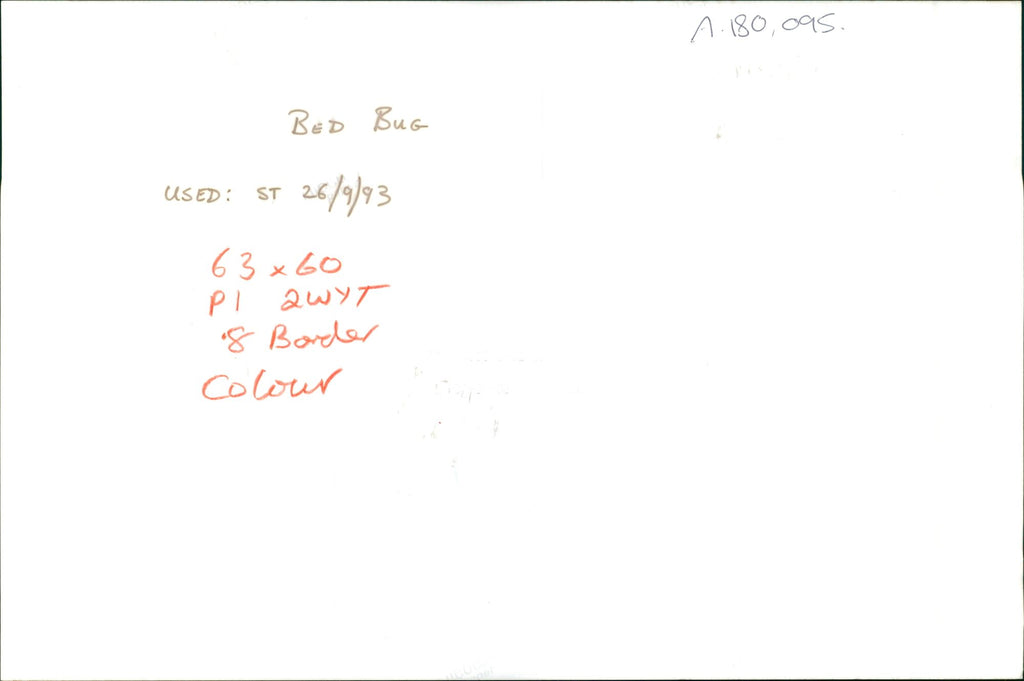 A.180,095.
BED BUG
USED: ST 26/9/93
63 x 60
P1 2WYT
.8 Border
Colour